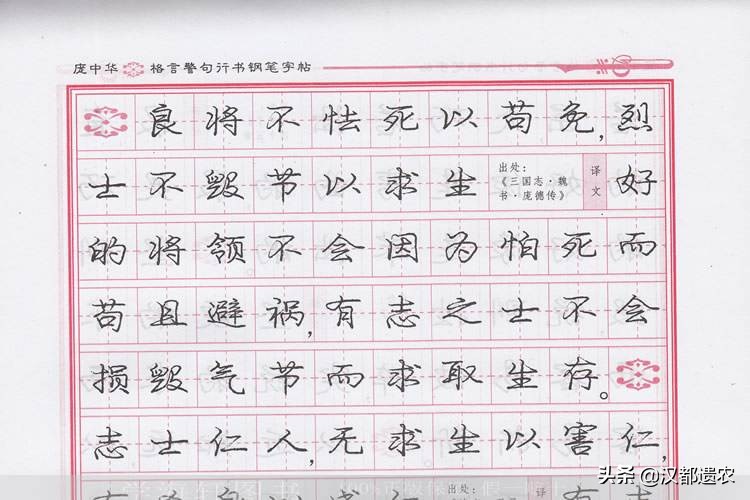 庞中华 格言警句行书钢笔字帖
良将不怯死以苟免,烈
士不毁节以求生 出处:《三国志·魏书·庞德传》 译文 好
的将领不会因为怕死而
苟且避祸,有志之士不会
损毁气节而求取生存。
志士仁人,无求生以害仁,
头条 @汉都遗农